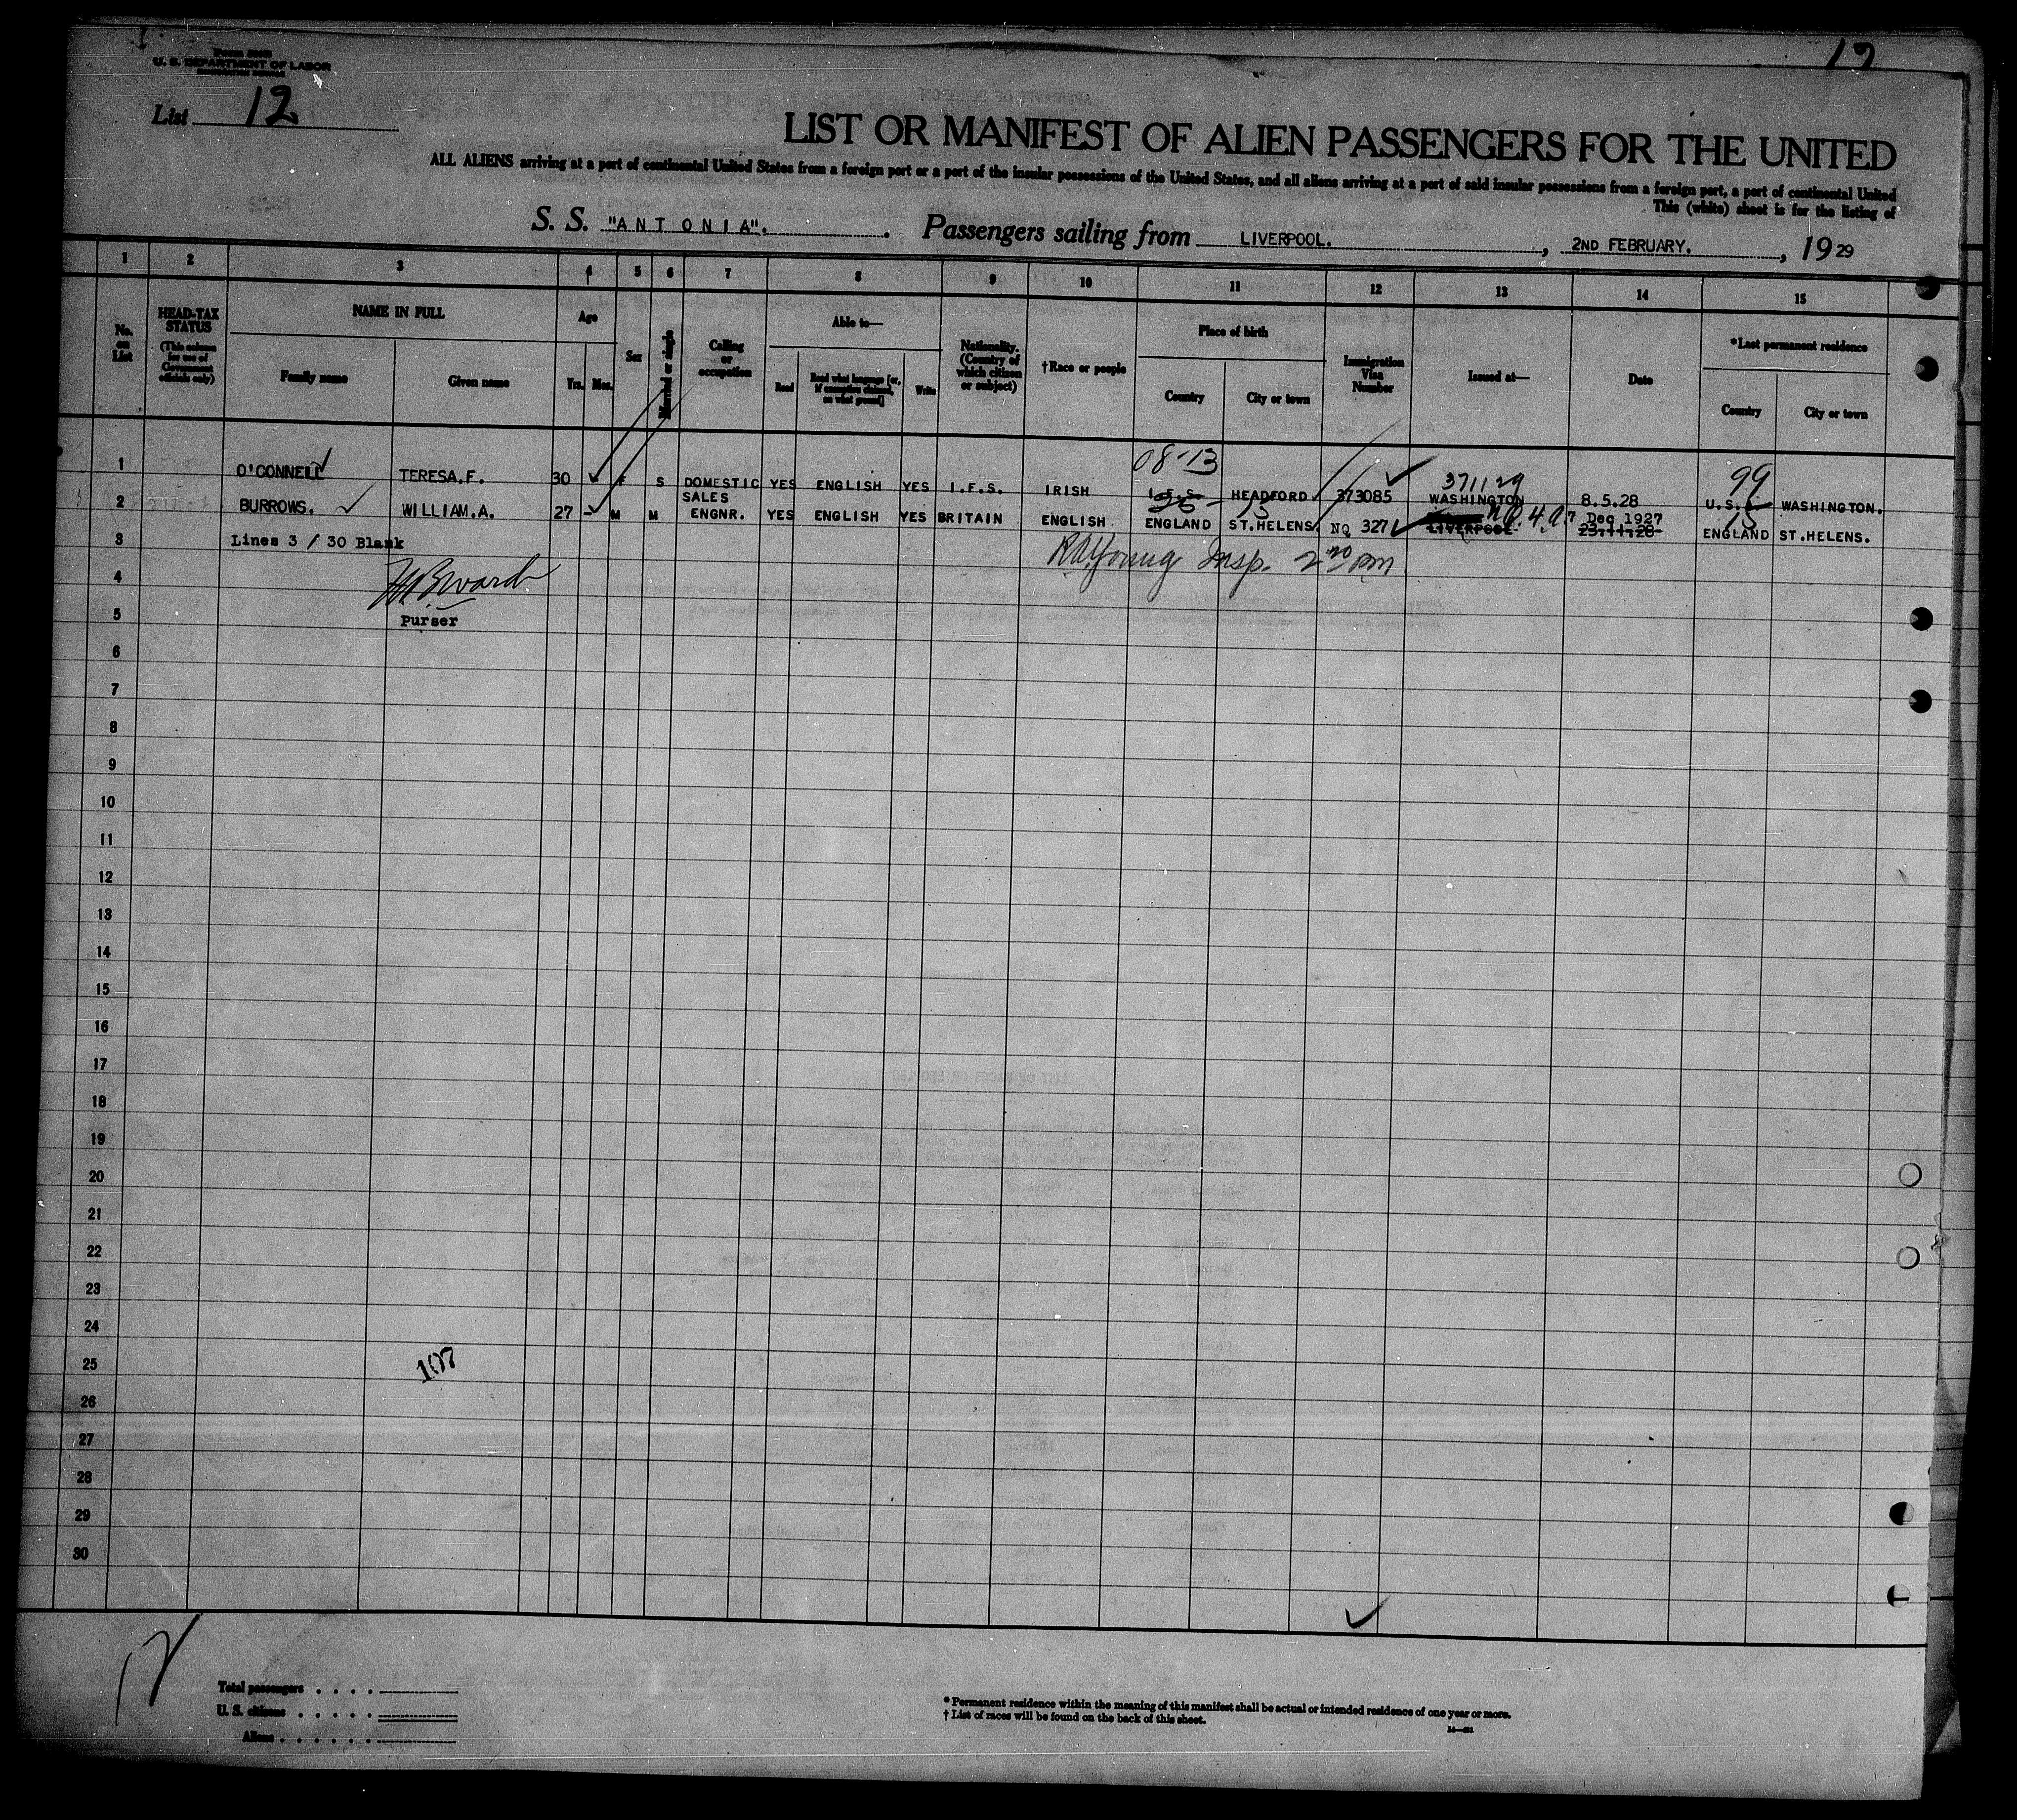 U. S. DEPARTMENT OF LABOR
12
List 12
LIST OR MANIFEST OF ALIEN PASSENGERS FOR THE UNITED
ALL ALIENS arriving at a port of continental United States from a foreign port or a port of the insular possessions of the United States, and all aliens arriving at a port of said insular possessions from a foreign port, a port of continental United
This (white) sheet is for the listing of
S. S. "ANTONIA". Passengers sailing from LIVERPOOL., 2ND FEBRUARY., 19 29
1 2 3 4 5 6 7 8 9 10 11 12 13 14 15
No. on List
HEAD-TAX STATUS (This column for use of Government officials only)
NAME IN FULL
Family name Given name
Age
Yrs. Mos.
Sex
Married or single
Calling or occupation
Able to—
Read Read what language [or, if exemption claimed, on what ground] Write
Nationality. (Country of which citizen or subject)
†Race or people
Place of birth
Country City or town
Immigration Visa Number
Issued at—
Date
*Last permanent residence
Country City or town
08-13 371129 99
1 O'CONNELL TERESA.F. 30 F S DOMESTIC YES ENGLISH YES I.F.S. IRISH I.F.S. HEADFORD 373085 WASHINGTON 8.5.28 U.S. WASHINGTON.
2 BURROWS. WILLIAM.A. 27 - M M SALES ENGNR. YES ENGLISH YES BRITAIN ENGLISH ENGLAND ST.HELENS NQ 327 LIVERPOOL Dec 1927 23.11.28 ENGLAND ST.HELENS.
3 Lines 3 / 30 Blank
R.A. Young Insp. 2 20 pm
4
Purser
5
6
7
8
9
10
11
12
13
14
15
16
17
18
19
20
21
22
23
24
25
107
26
27
28
29
30
12
Total passengers
U. S. citizens
Aliens
* Permanent residence within the meaning of this manifest shall be actual or intended residence of one year or more.
† List of races will be found on the back of this sheet.